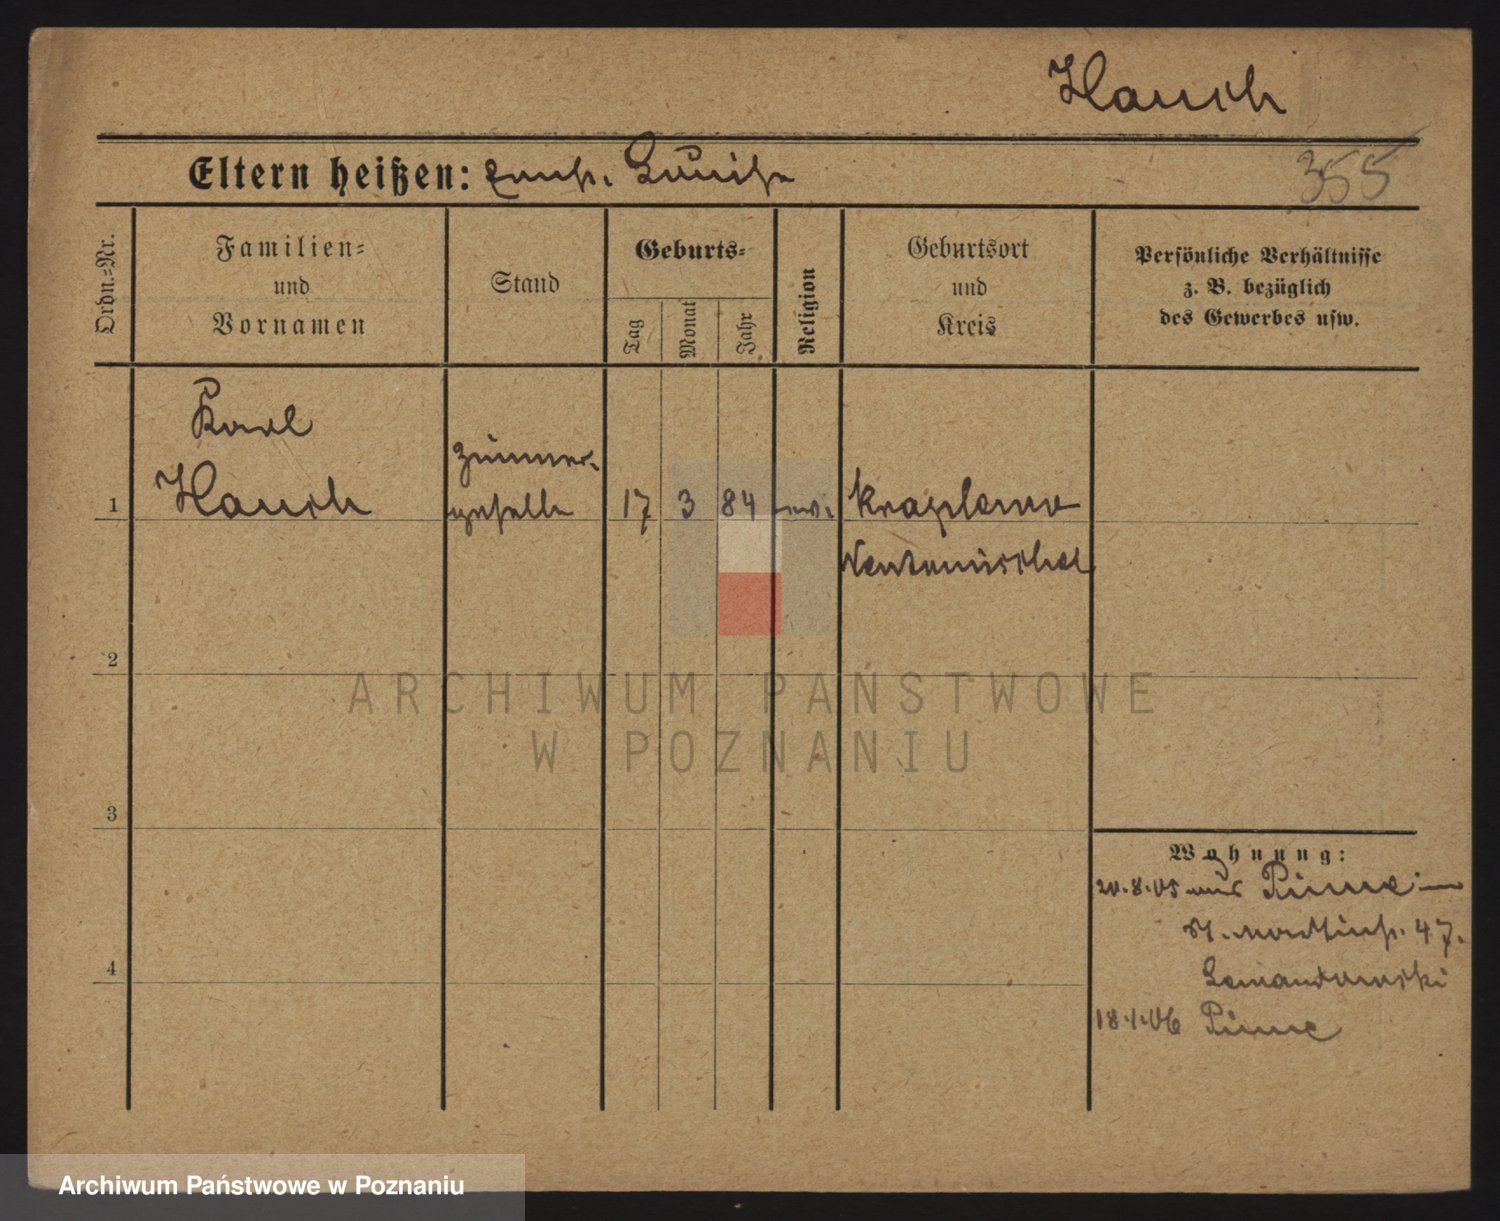 Hausch
Eltern heißen: Luise
355
Ordn.=Nr.
Familien=
und
Vornamen
Stand
Geburts=
Tag
Monat
Jahr
Religion
Geburtsort
und
Kreis
Persönliche Verhältnisse
z. B. bezüglich
des Gewerbes usw.
Karl
Hausch
Zimmer-
geselle
1
17
3
84
ev.
Neutomischel
2
ARCHIWUM PAŃSTWOWE
W POZNANIU
3
Wohnung:
20.8.05 aus Pinne
St. Martinstr. 47.
4
18.1.06 Pinne
Archiwum Państwowe w Poznaniu